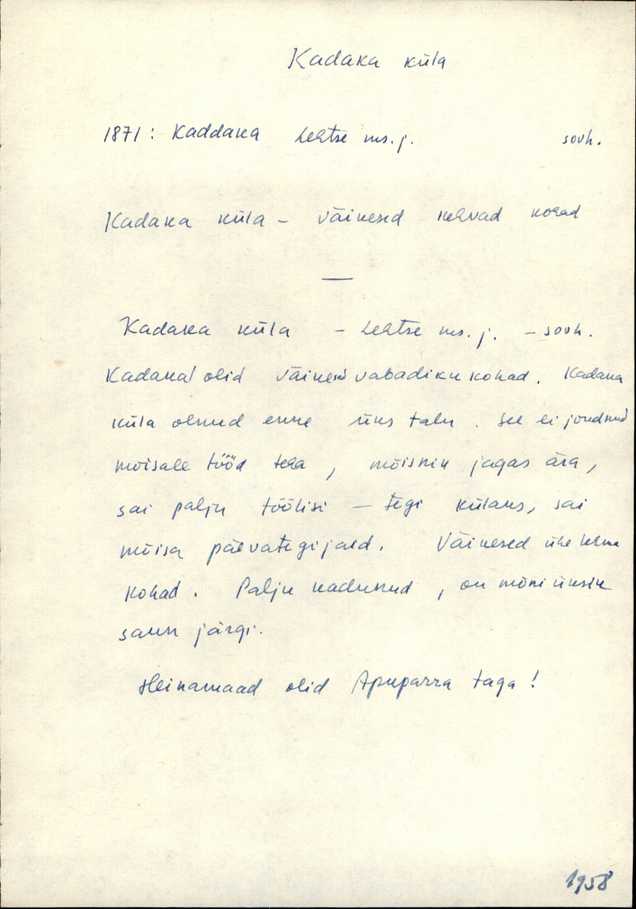 Kadaka küla
1871: Kaddaka Lehtse ms. j. sovh.
Kadaka küla - väikesed kehvad kohad
—
Kadaka küla - Lehtse ms. j. - sovh.
Kadakal olid väikesed vabadiku kohad. Kadaka
küla olnud enne üks talu. See ei jõudnud
mõisale tööd teha, mõisnik jagas ära,
sai palju töölisi - tegi külaks, sai
mõisa päevategijaid. Väikesed ühe lehma
kohad. Palju kadunud, on mõni üksik
saun järgi.
Heinamaad olid Apuparra taga!
1958